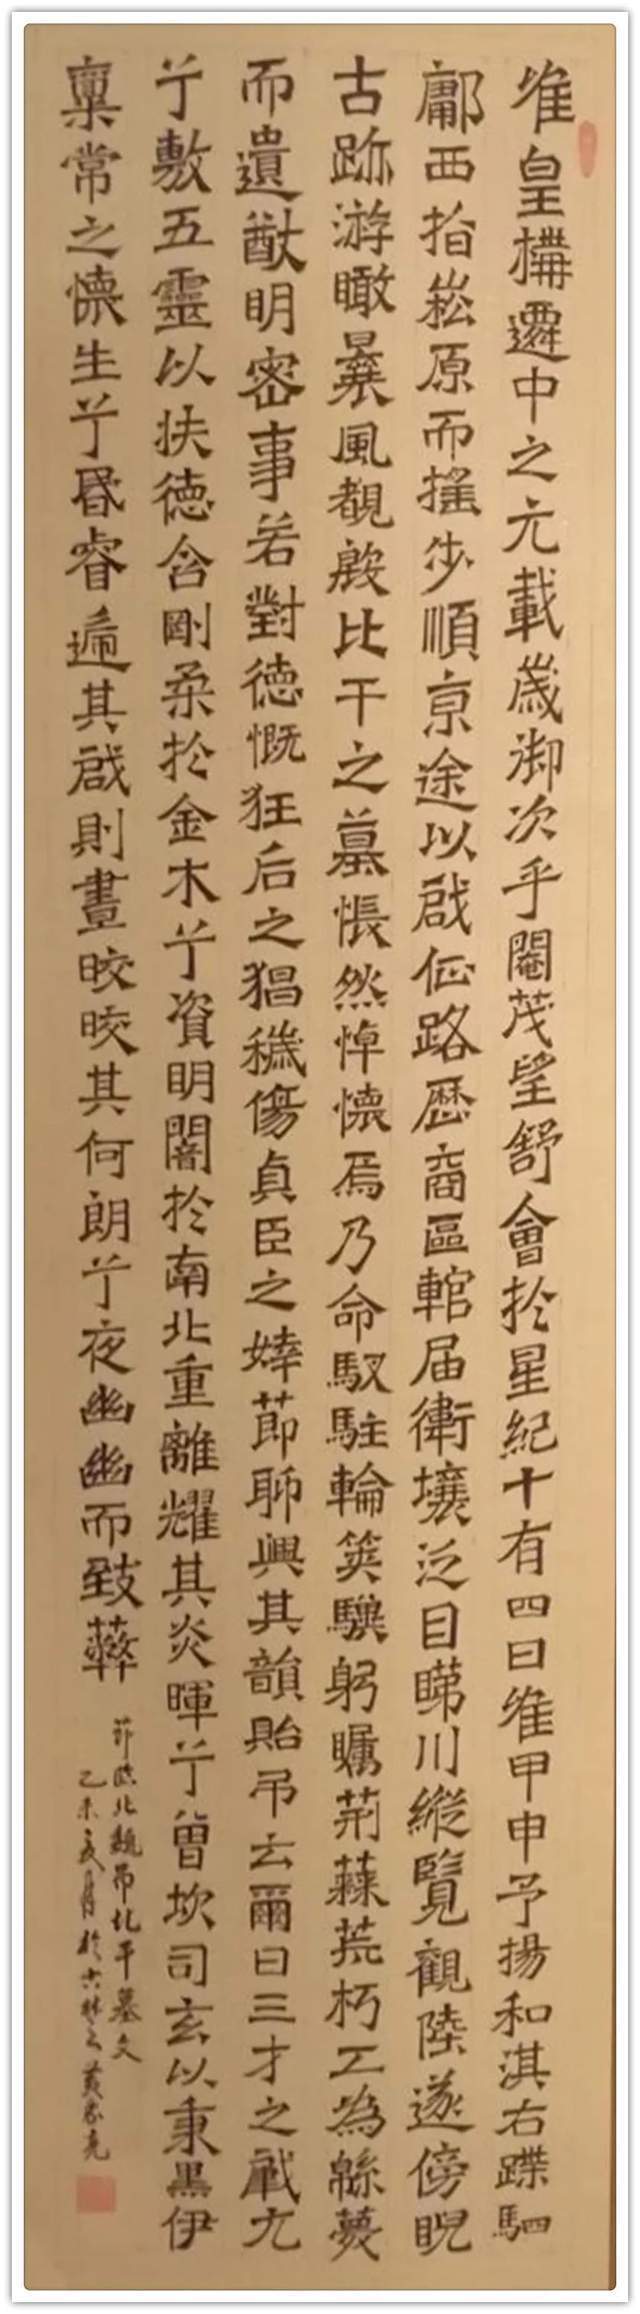 唯皇構遷中之元載歲御次乎閹茂望舒會於星紀十有四日唯甲申予揚和淇右蹀駟
鄘西指崧原而搖步順京途以啟征路歷商區輨屆衛壤泛目睇川縱覽觀陸遂傍睨
古跡游瞰暴風覩殷比干之墓悵然悼懷焉乃命馭駐輪筴驥躬矚荊蕀荒朽工為綿蔑
而遺猷明密事若對德慨狂后之猖穢傷貞臣之婞節聊興其韻貽弔云爾曰三才之肇元
兮敷五靈以扶德含剛柔於金木兮資明闇於南北重離耀其炎暉兮曾坎司玄以秉黑伊
稟常之懷生兮昏睿遞其啟則晝皎皎其何朗兮夜幽幽而致蔽
節臨北魏弔比干墓文
乙未 月於